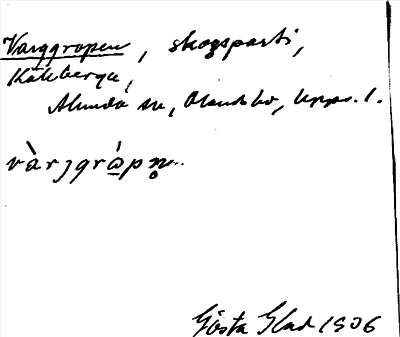 Varggropen, skogsparti,
Kåleberga,
Alunda sn, Olands hd, Upps. l.
vàrjgrápn̥
Gösta Glad 1906